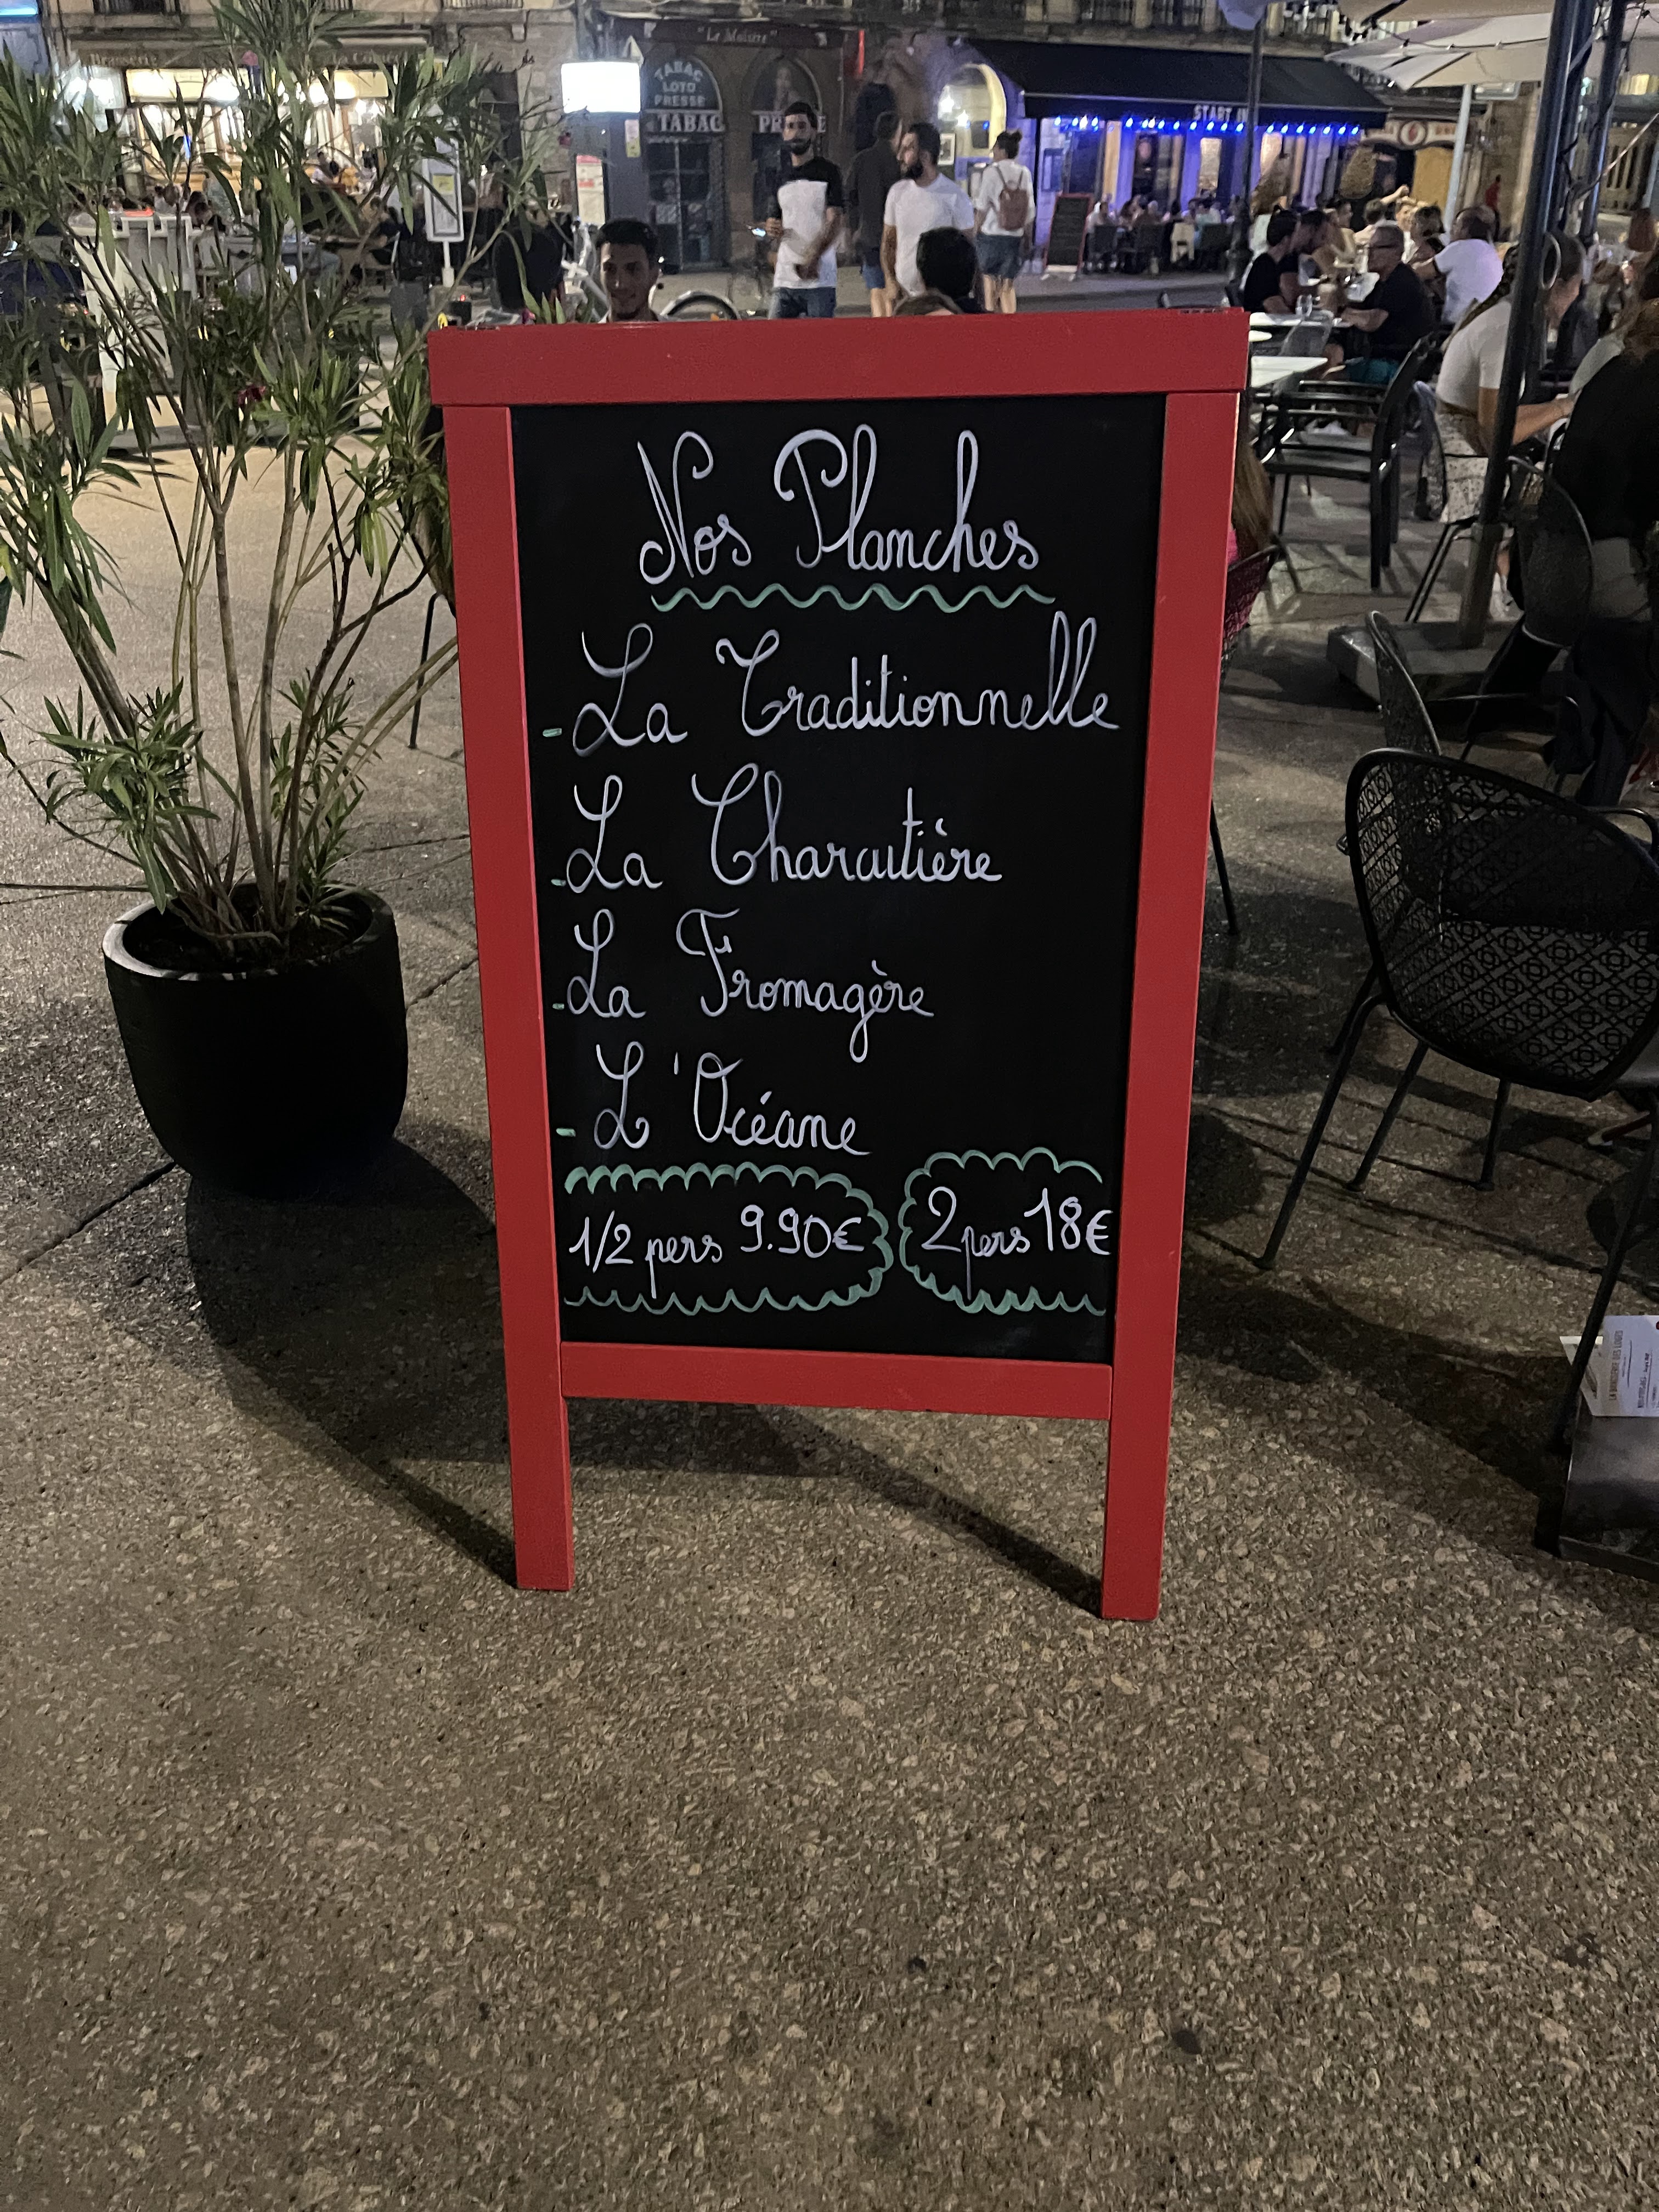 "Le Molière"
TABAC
LOTO
PRESSE
TABAC
Nos Planches
- La Traditionnelle
- La Charcutière
- La Fromagère
- L'Océane
1/2 pers 9.90€
2 pers 18€